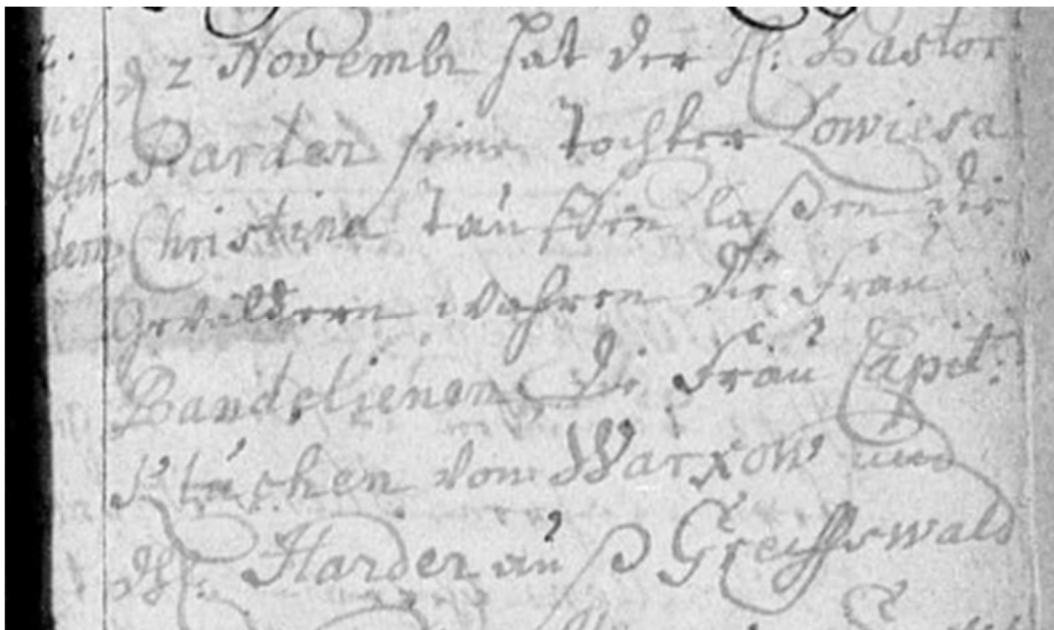 d 2 Novembr hat der H: Pastor
Harder seine tochter Lowiesa
Christina tauffen laßen die
Gevattern wahren die Frau
Bandelienen die Frau Capit:
von Warxow und
H: Harder auß Greiffswald